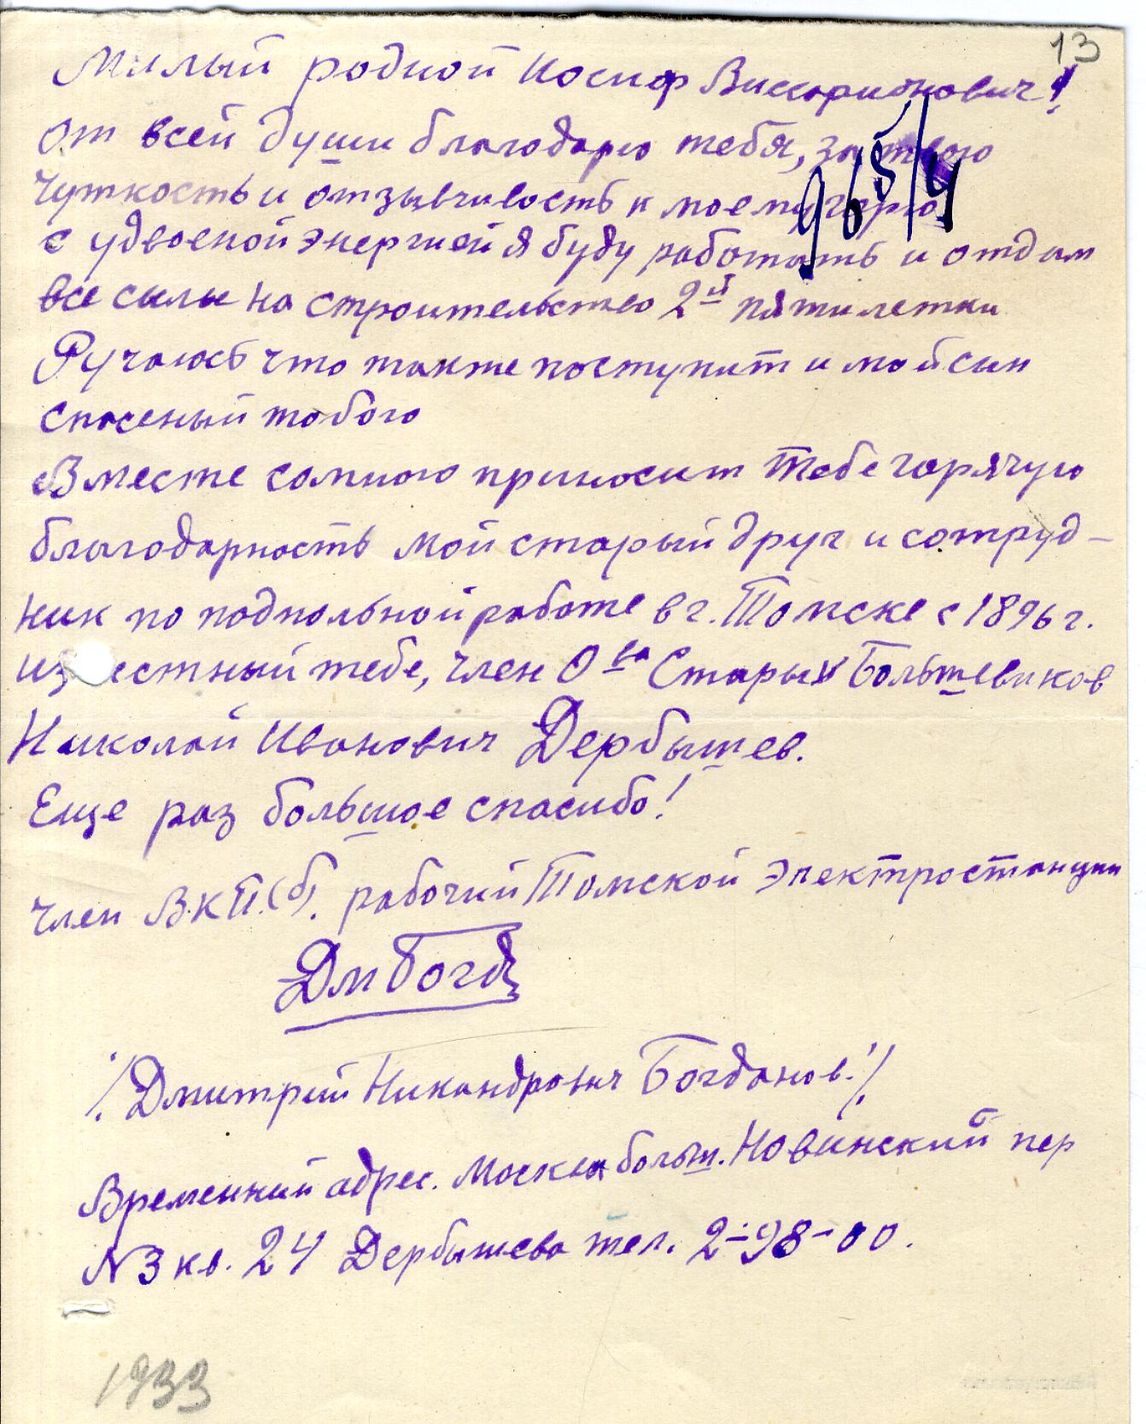 13
Милый родной Иосиф Виссарионович!
от всей души благодарю тебя, за твою
чуткость и отзывчивость к моему горю.
965/4
с удвоеной энергией я буду работать и отдам
все силы на строительство 2ой пятилетки
Ручаюсь что также поступит и мой сын
спасеный тобою
Вместе самною приносит тебе горячую
благодарность мой старый друг и сотруд-
ник по подпольной работе в г. Томске с 1896 г.
из естный тебе, член О-ва Старых Большевиков
Николай Иванович Дербышев.
Еще раз большое спасибо!
член В.К.П.(б). рабочий Томской Электростанции
Дм Богд
/Дмитрий Никандрович Богданов./
Временный адрес. Москва больш. Новинский пер
N3 кв. 24 Дербышева тел. 2-98-00.
1933